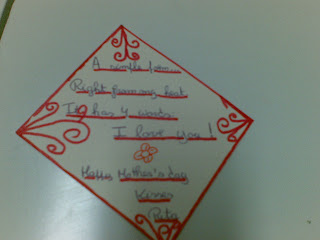 A simple poem...
Right from my heart
It has 4 words:
I love you!
Happy Mother's day
Kisses
Rita